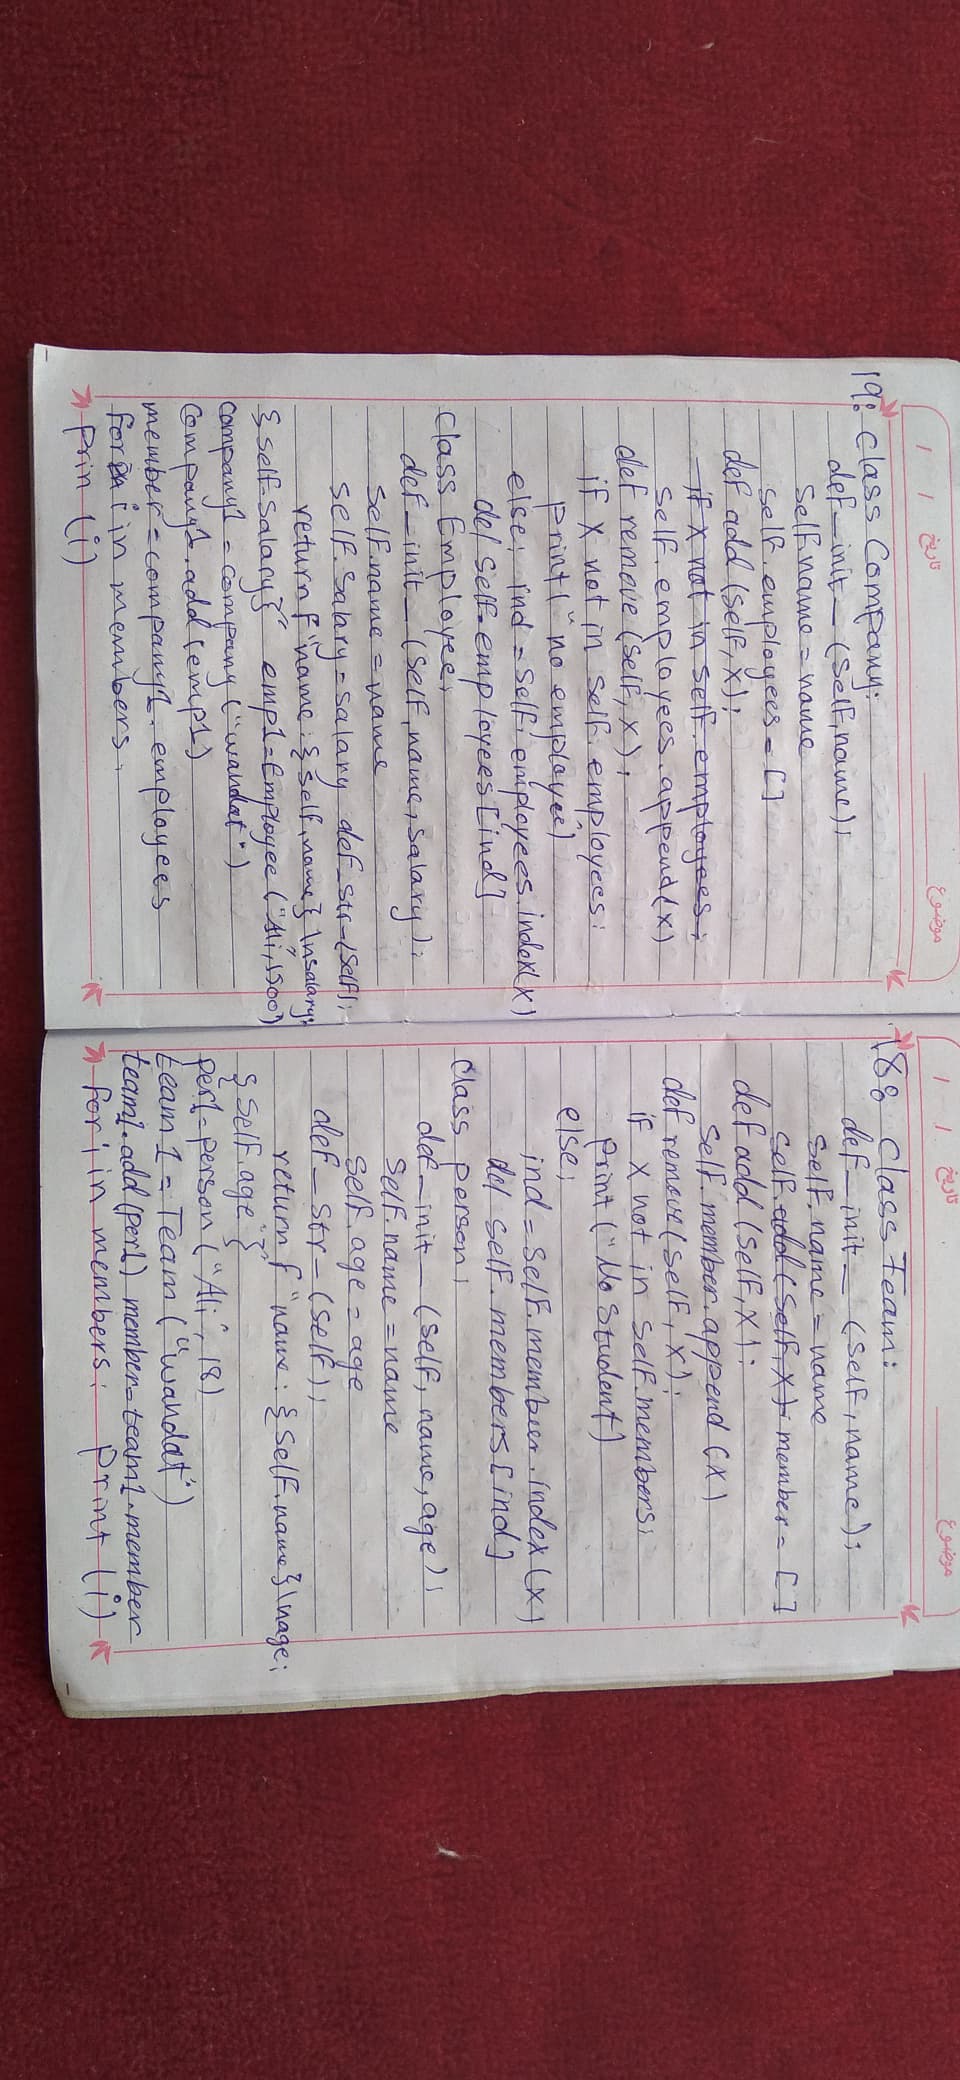 تاریخ 1 1
موضوع
19: class Company:
def_init_ (self,name):
self.name=name
self.employees=[]
def add (self,x):
if x not in self.employees:
self.employees.append(x)
def remove (self,x):
if x not in self.employees:
print("no employee)
else: ind=self.employees.index(x)
del self.employees[ind]
class Employee:
def_init_(self,name,salary):
self.name=name
self.salary=salary def_str_(self):
return f"name:{self.name}\nsalary:
{self.salary}" emp1=Employee("Ali,1500)
company1=company("wahdat")
company1.add(emp1)
member=company1.employees
for i in members:
prin (i)
تاریخ 1 1
موضوع
18: class Team:
def_init_ (self,name):
self.name=name
self.add(self,x): member=[]
def add (self,x):
self.member.append(x)
def remove (self,x):
if x not in self.members:
print("No student)
else:
ind=self.member.index(x)
del self.members[ind]
class person:
def_init_ (self,name,age):
self.name=name
self.age=age
def_str_(self):
return f"name:{self.name}\nage:
{self.age"}
per1=person("Ali",18)
team1=Team("wahdat")
team1.add(per1) member=team1.member
for i in members: print (i)